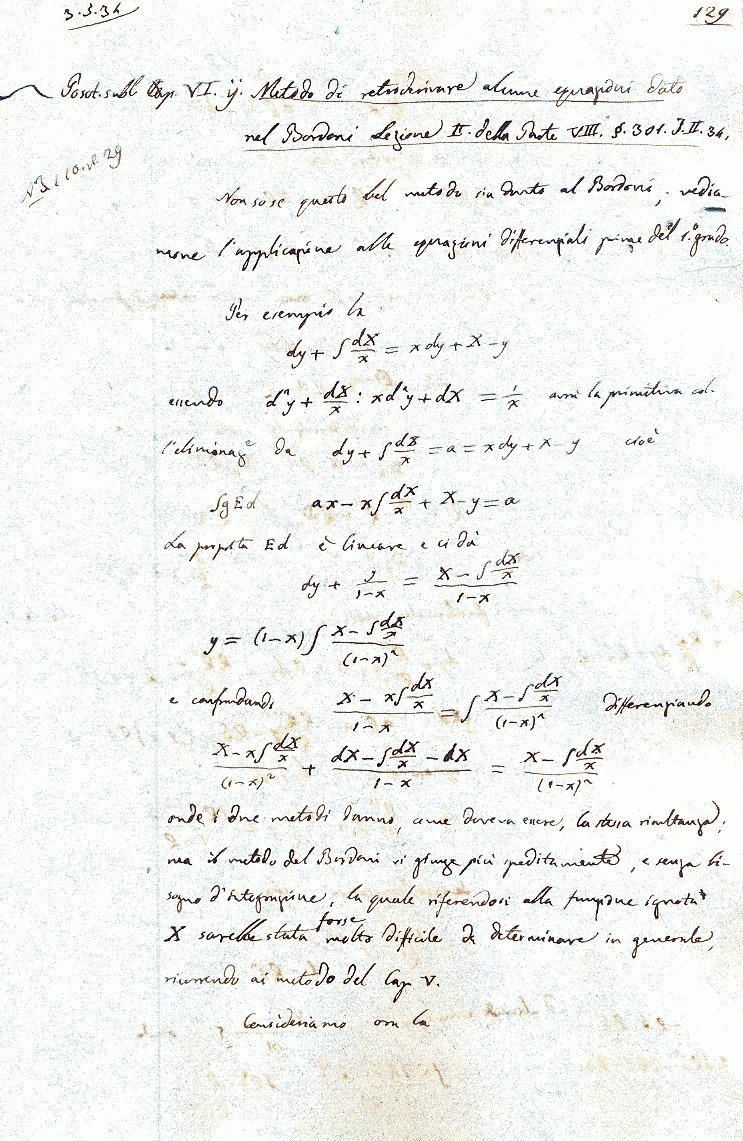 3.5.34
129
Posot. sull Cap. VI. ÿ. Metodo di retroderivare alcune equazioni dato
nel Bordoni Lezione II. della Parte VIII. §. 301. T. II. 34.
29
Non so se questo bel metodo sia dovuto al Bordoni; vedia-
mone l'applicazione alle equazioni differenziali prime del 1.º grado
Per esempio la
dy + ∫ dX/x = x dy + X - y
essendo d²y + dX/x : x d²y + dX = 1/x avrà la primitiva col-
l'eliminaz.e da dy + ∫ dX/x = a = x dy + X - y cioè
∫gEd ax - x∫ dX/x + X - y = a
La proposta Ed è lineare e ci dà
dy + y/(1-x) = (X - ∫ dX/x)/(1-x)
y = (1-x) ∫ (X - ∫ dX/x)/(1-x)²
e confrontando (X - x∫ dX/x)/(1-x) = ∫ (X - ∫ dX/x)/(1-x)² differenziando
(X - x∫ dX/x)/(1-x)² + (dX - ∫ dX/x - dX)/(1-x) = (X - ∫ dX/x)/(1-x)²
onde i due metodi danno, come doveva essere, la stessa risultanza;
ma il metodo del Bordoni vi giunge più speditamente, e senza bi-
sogno d'integrazione, la quale riferendosi alla funzione ignota
X sarebbe stata forse molto difficile da determinare in generale,
ricorrendo ai metodo del Cap. V.
Consideriamo ora la